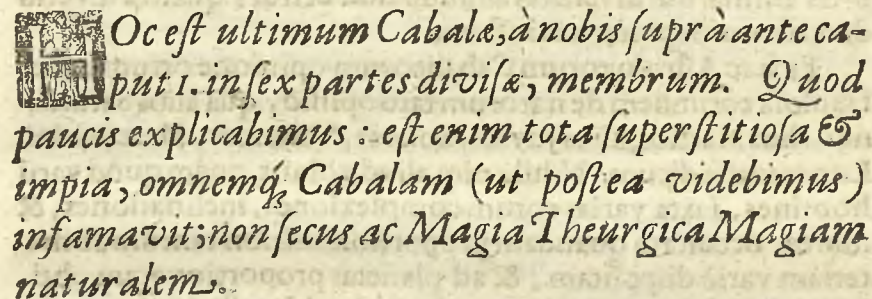 HOc eſt ultimum Cabalæ, à nobis ſuprà ante ca-
put 1. in ſex partes diviſæ, membrum. Quod
paucis explicabimus : eſt enim tota ſuperſtitioſa &
impia, omnemq́; Cabalam (ut poſtea videbimus)
infamavit; non ſecus ac Magia Theurgica Magiam
naturalem.